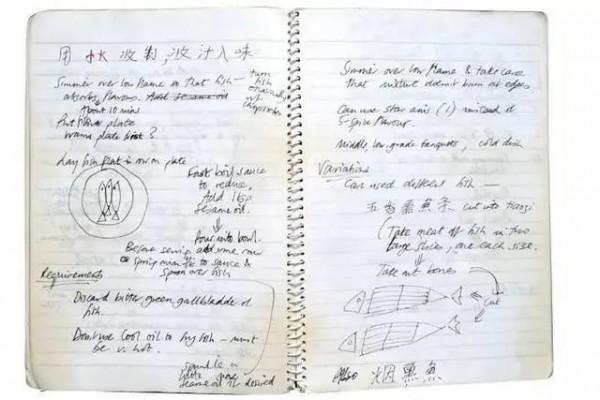 用 小火 收料，收汁入味
Simmer over low flame so that fish — turn
fish
occasionally
absorbs flavours. Add sesame oil
About 10 mins
Put plate
warm plate ?
Lay fish flat in row on plate
Fast boil sauce
to reduce.
Add 1 tsp
Sesame oil.
Pour into bowl.
Before serving add some raw
spring onion to sauce &
spoon over fish
Requirements
Discard bitter green gallbladder of
fish.
Dont use cool oil to fry fish — must
be v. hot.
more
sesame oil if desired
Simmer over low flame & take care
that mixture doesnt burn at edges.
Can use star anis (1) instead of
5-spice flavour.
Middle, low-grade banquets, cold dish
Variations
Can used different fish —
五香熏魚条 cut into
(Take meat of fish in two
large slices, one each side.
Take out bones
Cut
Also 烟熏魚